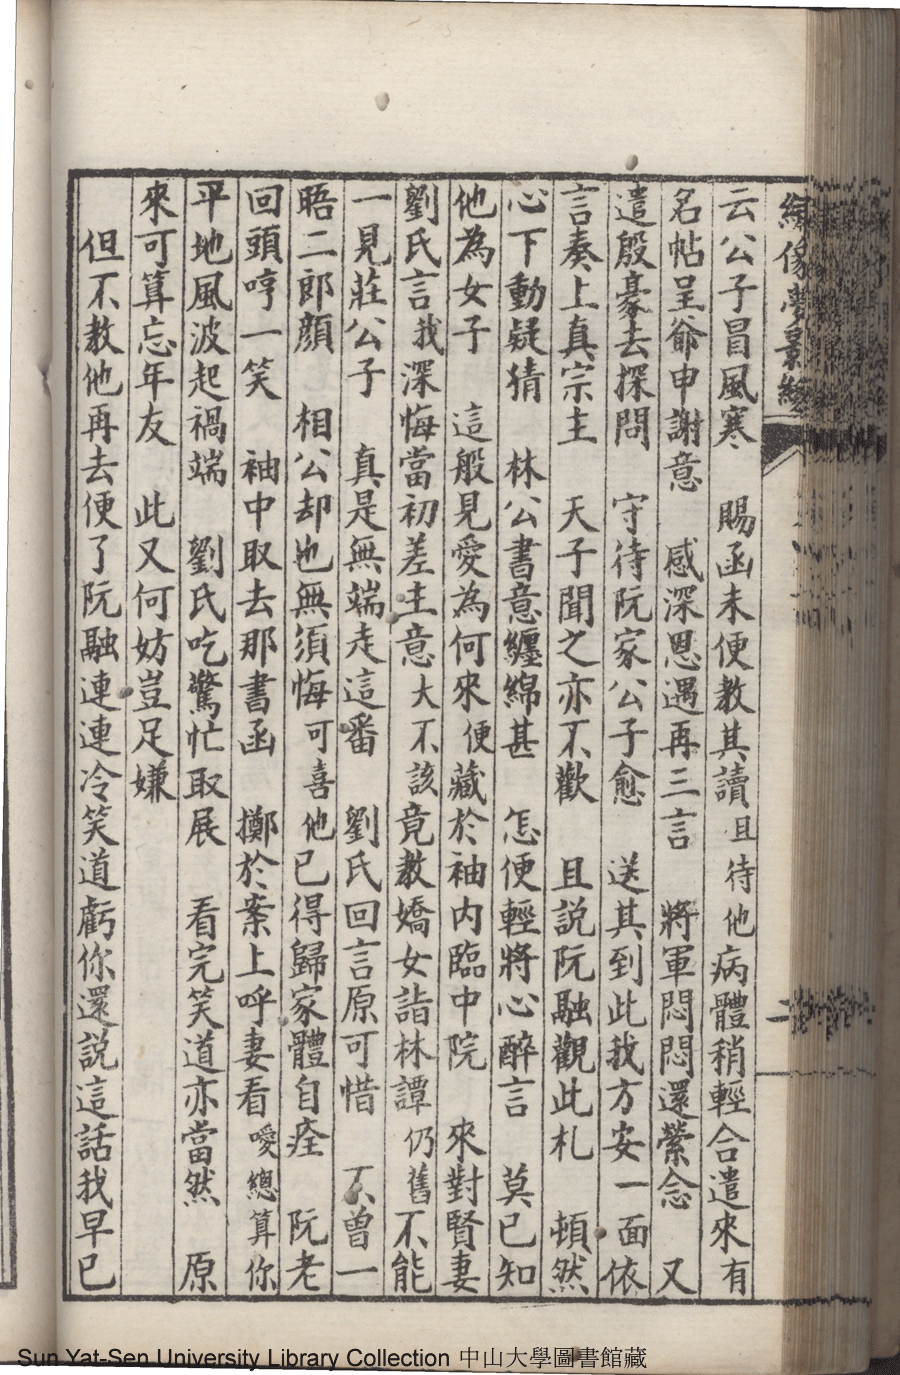 繡像夢影緣
云公子冒風寒　賜函未便教其讀且待他病體稍輕合遣來有
名帖呈爺申謝意　感深恩遇再三言　將軍悶悶還縈念　又
遣殷豪去探問　守待阮家公子愈　送其到此我方安一面依
言奏上真宗主　天子聞之亦不歡　且説阮融觀此札　頓然
心下動疑猜　林公書意纏綿甚　怎便輕將心醉言　莫已知
他為女子　這般見愛為何來便藏於袖內臨中院　來對賢妻
劉氏言我深悔當初差主意大不該竟教嬌女詣林譚仍舊不能
一見莊公子　真是無端走這番　劉氏回言原可惜　不曾一
晤二郎顔　相公却也無須悔可喜他已得歸家體自痊　阮老
回頭哼一笑　袖中取去那書函　擲於案上呼妻看噯總算你
平地風波起禍端　劉氏吃驚忙取展　看完笑道亦當然　原
來可算忘年友　此又何妨豈足嫌
但不教他再去便了阮融連連冷笑道虧你還説這話我早已
Sun Yat-Sen University Library Collection 中山大學圖書館藏